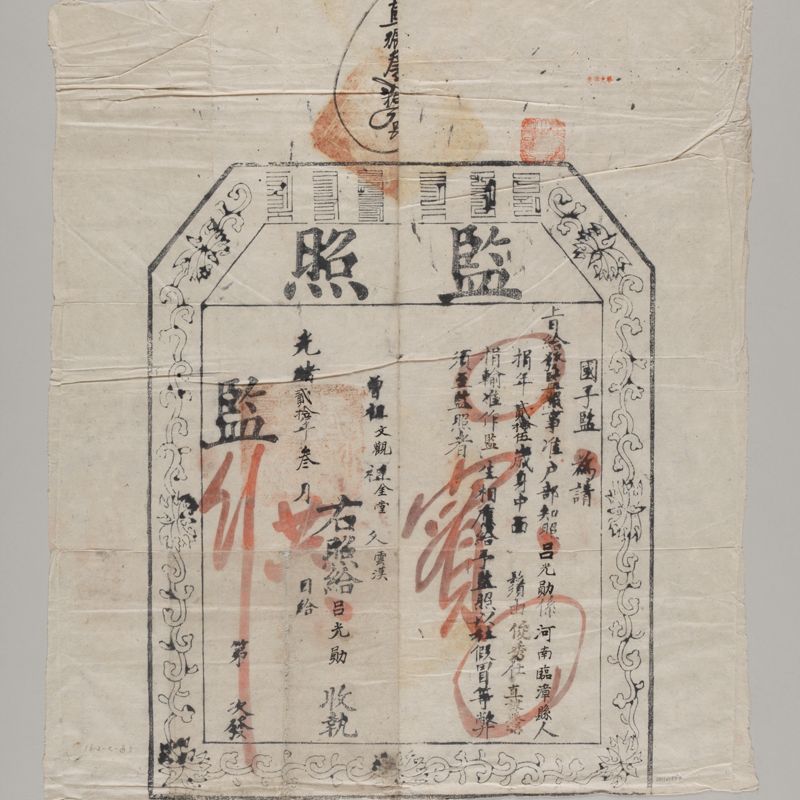 監照
國子監 為請
旨給發監照事准戶部知照呂光勛係河南臨漳縣人
捐年貳拾伍歲身中面 鬚由俊秀在直
捐輸准作監生相應給予監照以杜假冒等弊
須至監照者
曾祖文觀 祖金堂 父雲漢
右照給呂光勛 收執
光緒貳拾年叁月 日給
監 第 次發